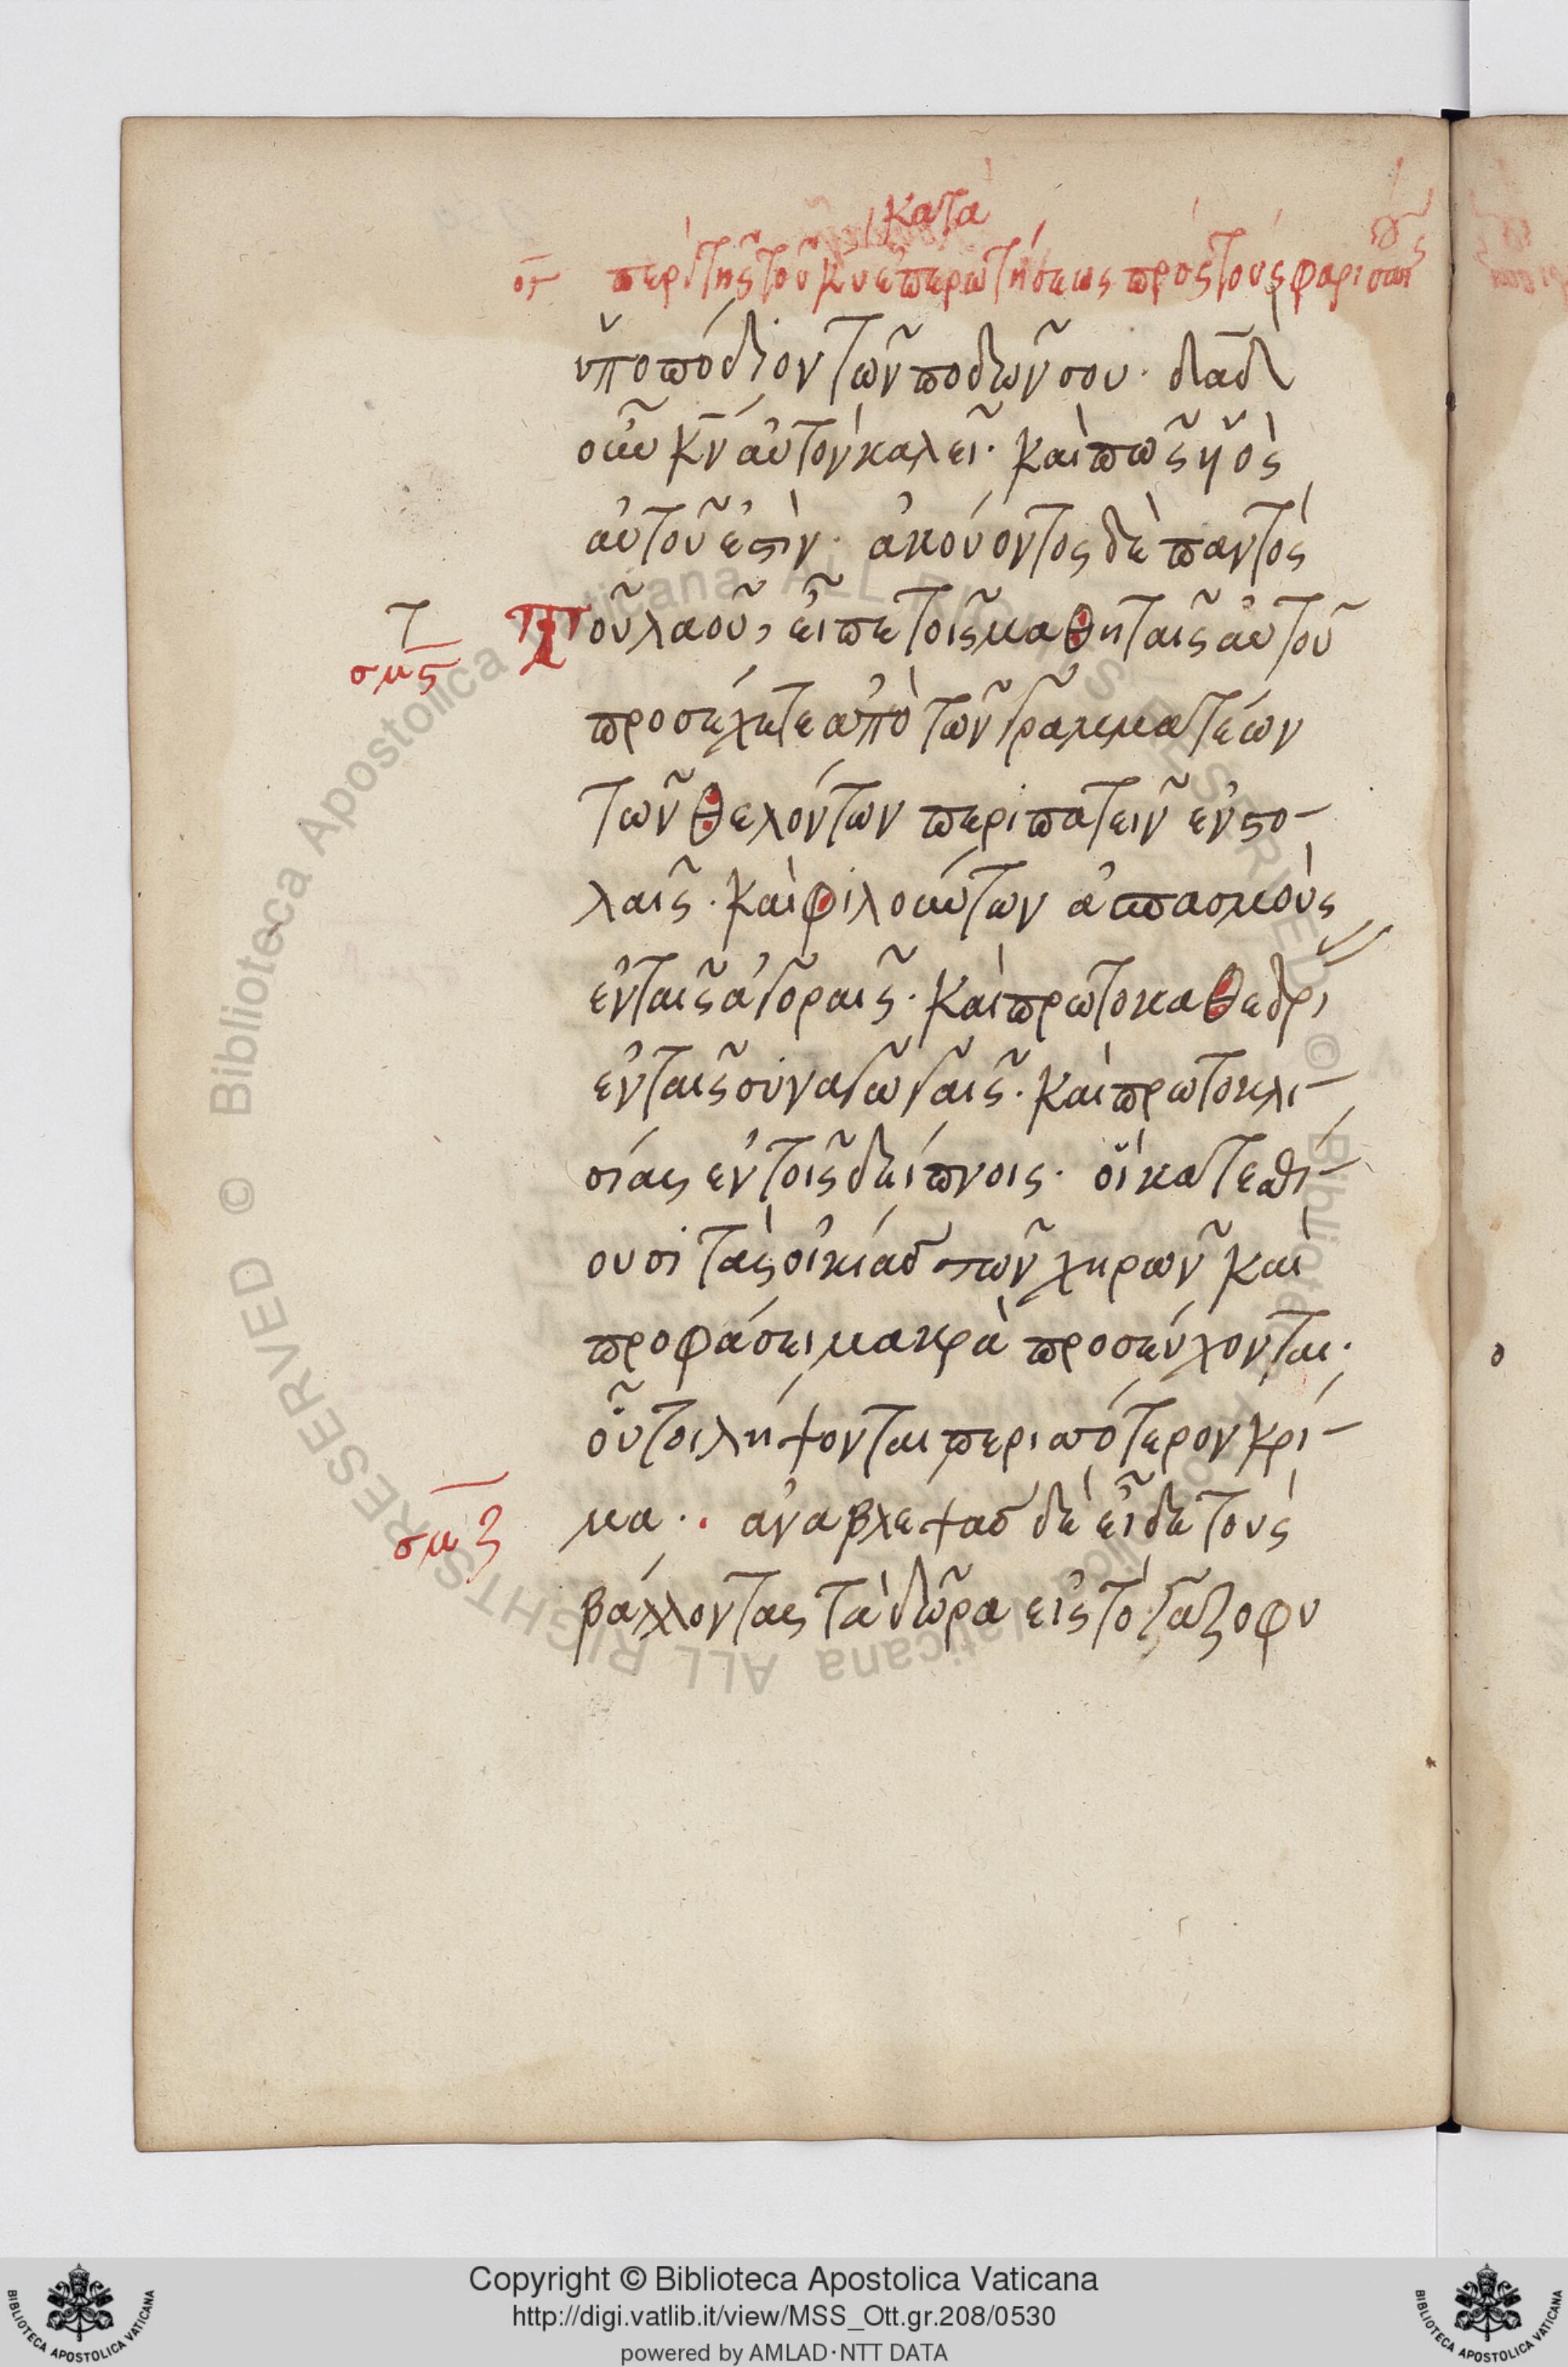 κατὰ
οϛ περὶ τῆς τοῦ κυ ἐπερωτήσεως πρὸς τοὺς φαρισαι
ὑποπόδιον τῶν ποδῶν σου· δαδ
οὖν κν αὐτὸν καλεῖ· καὶ πῶς υἱὸς
αὐτοῦ ἐστὶν· ἀκούοντος δὲ παντὸς
τοῦ λαοῦ, εἶπε τοῖς μαθηταῖς αὐτοῦ
σμϛ
προσέχετε ἀπὸ τῶν γραμματέων
τῶν θελόντων περιπατεῖν ἐν στο-
λαῖς· καὶ φιλούντων ἀσπασμοὺς
ἐν ταῖς ἀγοραῖς· καὶ πρωτοκαθεδρι
ἐν ταῖς συναγωγαῖς· καὶ πρωτοκλι-
σίας ἐν τοῖς δείπνοις· οἳ κατεσθί-
ουσι τὰς οἰκίας τῶν χηρῶν καὶ
προφάσει μακρὰ προσεύχονται·
οὗτοι λήψονται περισσότερον κρί-
μα·. ἀναβλεψας δὲ εἶδε τοὺς
σμζ
βάλλοντας τὰ δῶρα εἰς τὸ γαζοφυ
© Biblioteca Apostolica Vaticana ALL RIGHTS RESERVED
© Biblioteca Apostolica Vaticana ALL RIGHTS RESERVED
Copyright © Biblioteca Apostolica Vaticana
http://digi.vatlib.it/view/MSS_Ott.gr.208/0530
powered by AMLAD·NTT DATA
BIBLIOTECA APOSTOLICA VATICANA
BIBLIOTECA APOSTOLICA VATICANA